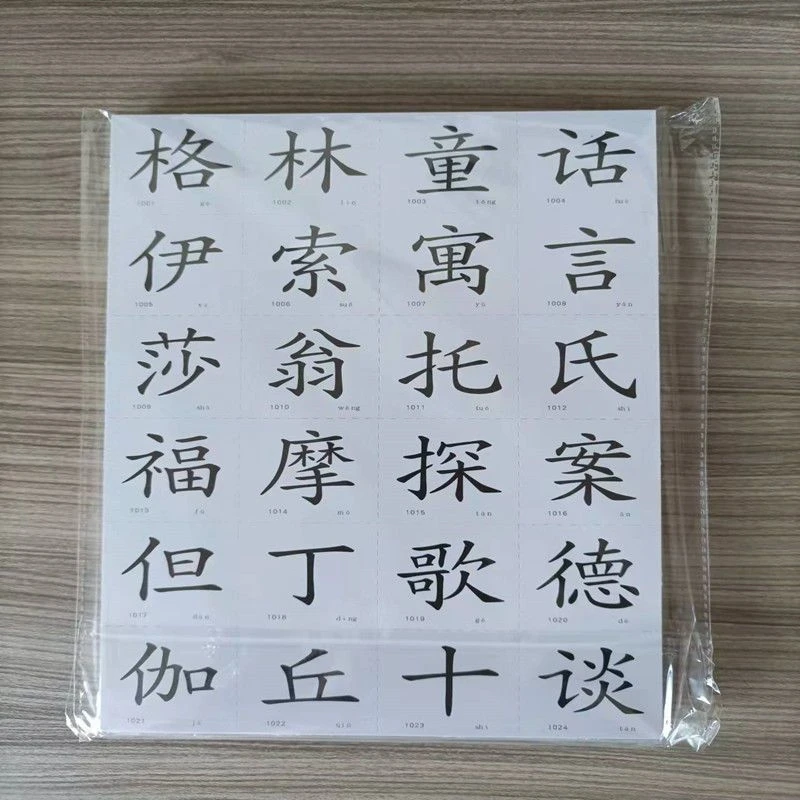 格 林 童 话
1001 gé 1002 lín 1003 tóng 1004 huà
伊 索 寓 言
1005 yī 1006 suǒ 1007 yù 1008 yán
莎 翁 托 氏
1009 shā 1010 wēng 1011 tuō 1012 shì
福 摩 探 案
1013 fú 1014 mó 1015 tàn 1016 àn
但 丁 歌 德
1017 dàn 1018 dīng 1019 gē 1020 dé
伽 丘 十 谈
1021 jiā 1022 qiū 1023 shí 1024 tán